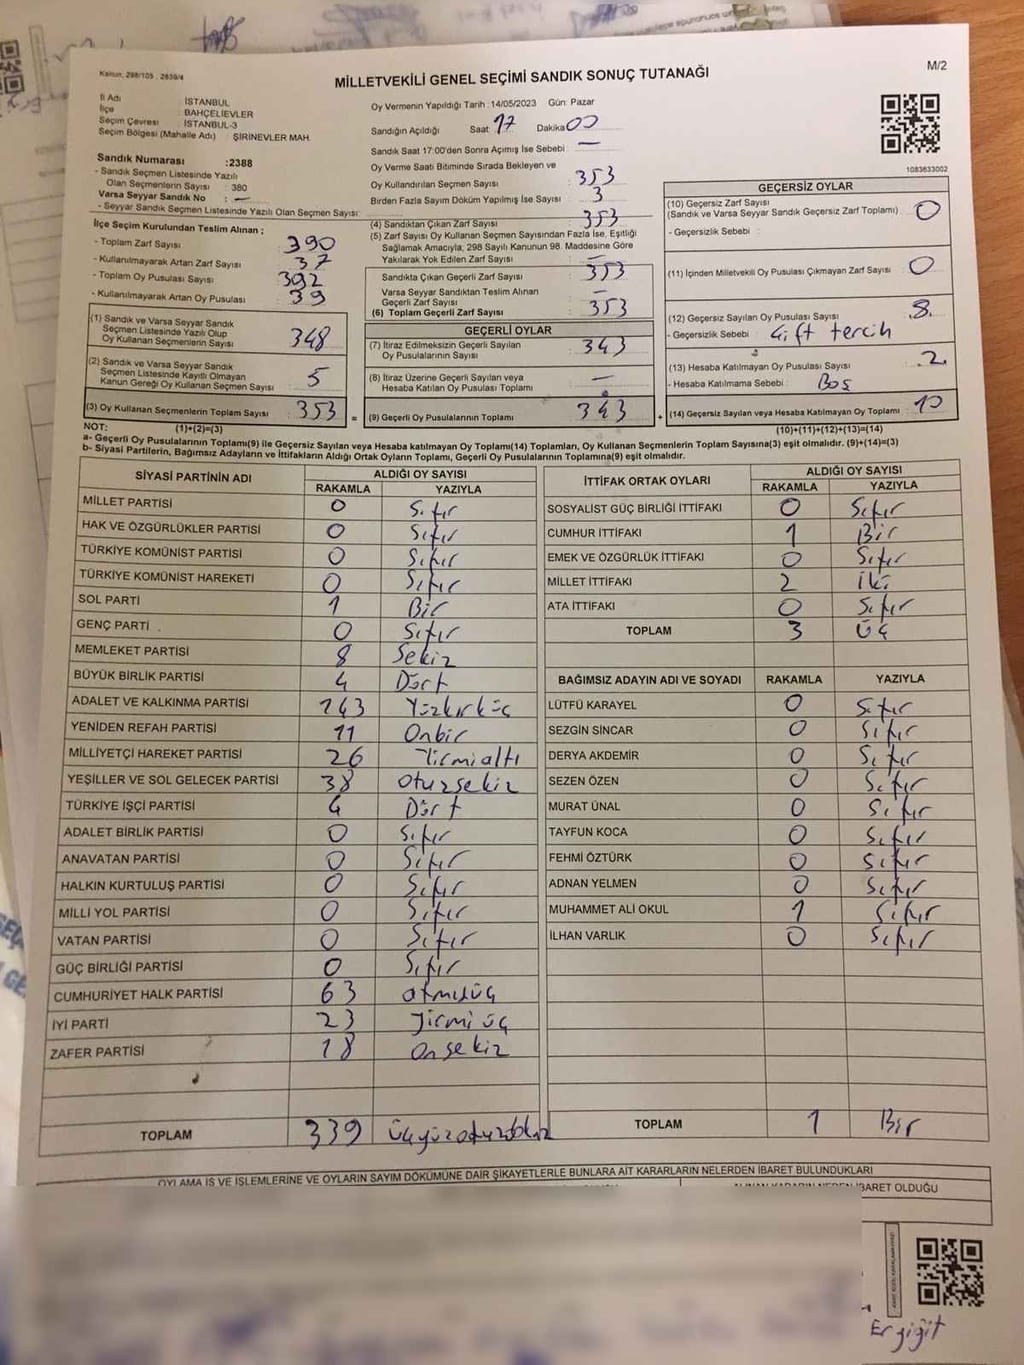 Kanun, 298/105 , 2839/4
M/2
MİLLETVEKİLİ GENEL SEÇİMİ SANDIK SONUÇ TUTANAĞI
İl Adı : İSTANBUL
İlçe : BAHÇELİEVLER
Seçim Çevresi : İSTANBUL-3
Seçim Bölgesi (Mahalle Adı) : ŞİRİNEVLER MAH.
Sandık Numarası :2388
- Sandık Seçmen Listesinde Yazılı
Olan Seçmenlerin Sayısı : 380
Varsa Seyyar Sandık No : —
- Seyyar Sandık Seçmen Listesinde Yazılı Olan Seçmen Sayısı:
Oy Vermenin Yapıldığı Tarih : 14/05/2023 Gün: Pazar
Sandığın Açıldığı Saat 17 Dakika 00
Sandık Saat 17:00'den Sonra Açımış İse Sebebi : —
Oy Verme Saati Bitiminde Sırada Bekleyen ve
Oy Kullandırılan Seçmen Sayısı : 353
Birden Fazla Sayım Döküm Yapılmış İse Sayısı : 3
(4) Sandıktan Çıkan Zarf Sayısı : 353
(5) Zarf Sayısı Oy Kullanan Seçmen Sayısından Fazla İse, Eşitliği
Sağlamak Amacıyla, 298 Sayılı Kanunun 98. Maddesine Göre
Yakılarak Yok Edilen Zarf Sayısı : —
1083633002
İlçe Seçim Kurulundan Teslim Alınan ;
- Toplam Zarf Sayısı : 390
- Kullanılmayarak Artan Zarf Sayısı : 37
- Toplam Oy Pusulası Sayısı : 392
- Kullanılmayarak Artan Oy Pusulası : 39
(1) Sandık ve Varsa Seyyar Sandık
Seçmen Listesinde Yazılı Olup
Oy Kullanan Seçmenlerin Sayısı : 348
(2) Sandık ve Varsa Seyyar Sandık
Seçmen Listesinde Kayıtlı Olmayan
Kanun Gereği Oy Kullanan Seçmen Sayısı : 5
(3) Oy Kullanan Seçmenlerin Toplam Sayısı : 353 =
Sandıkta Çıkan Geçerli Zarf Sayısı : 353
Varsa Seyyar Sandıktan Teslim Alınan
Geçerli Zarf Sayısı : —
(6) Toplam Geçerli Zarf Sayısı : 353
GEÇERLİ OYLAR
(7) İtiraz Edilmeksizin Geçerli Sayılan
Oy Pusulalarının Sayısı : 343
(8) İtiraz Üzerine Geçerli Sayılan veya
Hesaba Katılan Oy Pusulası Toplamı : —
(9) Geçerli Oy Pusulalarının Toplamı : 343 +
GEÇERSİZ OYLAR
(10) Geçersiz Zarf Sayısı
(Sandık ve Varsa Seyyar Sandık Geçersiz Zarf Toplamı) : 0
- Geçersizlik Sebebi :
(11) İçinden Milletvekili Oy Pusulası Çıkmayan Zarf Sayısı : 0
(12) Geçersiz Sayılan Oy Pusulası Sayısı : 8.
- Geçersizlik Sebebi : Çift tercih
(13) Hesaba Katılmayan Oy Pusulası Sayısı : 2.
- Hesaba Katılmama Sebebi : Boş
(14) Geçersiz Sayılan veya Hesaba Katılmayan Oy Toplamı : 10
NOT: (1)+(2)=(3) (10)+(11)+(12)+(13)=(14)
a- Geçerli Oy Pusulalarının Toplamı(9) ile Geçersiz Sayılan veya Hesaba katılmayan Oy Toplamı(14) Toplamları, Oy Kullanan Seçmenlerin Toplam Sayısına(3) eşit olmalıdır. (9)+(14)=(3)
b- Siyasi Partilerin, Bağımsız Adayların ve İttifakların Aldığı Ortak Oyların Toplamı, Geçerli Oy Pusulalarının Toplamına(9) eşit olmalıdır.
SİYASİ PARTİNİN ADI ALDIĞI OY SAYISI
RAKAMLA YAZIYLA
MİLLET PARTİSİ 0 Sıfır
HAK VE ÖZGÜRLÜKLER PARTİSİ 0 Sıfır
TÜRKİYE KOMÜNİST PARTİSİ 0 Sıfır
TÜRKİYE KOMÜNİST HAREKETİ 0 Sıfır
SOL PARTİ 1 Bir
GENÇ PARTİ 0 Sıfır
MEMLEKET PARTİSİ 8 Sekiz
BÜYÜK BİRLİK PARTİSİ 4 Dört
ADALET VE KALKINMA PARTİSİ 143 Yüzkırküç
YENİDEN REFAH PARTİSİ 11 Onbir
MİLLİYETÇİ HAREKET PARTİSİ 26 Yirmialtı
YEŞİLLER VE SOL GELECEK PARTİSİ 38 Otuzsekiz
TÜRKİYE İŞÇİ PARTİSİ 4 Dört
ADALET BİRLİK PARTİSİ 0 Sıfır
ANAVATAN PARTİSİ 0 Sıfır
HALKIN KURTULUŞ PARTİSİ 0 Sıfır
MİLLİ YOL PARTİSİ 0 Sıfır
VATAN PARTİSİ 0 Sıfır
GÜÇ BİRLİĞİ PARTİSİ 0 Sıfır
CUMHURİYET HALK PARTİSİ 63 atmışüç
İYİ PARTİ 23 Yirmi üç
ZAFER PARTİSİ 18 Onsekiz
TOPLAM 339 üçyüzotuzdokuz
İTTİFAK ORTAK OYLARI ALDIĞI OY SAYISI
RAKAMLA YAZIYLA
SOSYALİST GÜÇ BİRLİĞİ İTTİFAKI 0 Sıfır
CUMHUR İTTİFAKI 1 Bir
EMEK VE ÖZGÜRLÜK İTTİFAKI 0 Sıfır
MİLLET İTTİFAKI 2 İki
ATA İTTİFAKI 0 Sıfır
TOPLAM 3 Üç
BAĞIMSIZ ADAYIN ADI VE SOYADI RAKAMLA YAZIYLA
LÜTFÜ KARAYEL 0 Sıfır
SEZGİN SİNCAR 0 Sıfır
DERYA AKDEMİR 0 Sıfır
SEZEN ÖZEN 0 Sıfır
MURAT ÜNAL 0 Sıfır
TAYFUN KOCA 0 Sıfır
FEHMİ ÖZTÜRK 0 Sıfır
ADNAN YELMEN 0 Sıfır
MUHAMMET ALİ OKUL 1 Sıfır
İLHAN VARLIK 0 Sıfır
TOPLAM 1 Bir
OYLAMA İŞ VE İŞLEMLERİNE VE OYLARIN SAYIM DÖKÜMÜNE DAİR ŞİKAYETLERLE BUNLARA AİT KARARLARIN NELERDEN İBARET BULUNDUKLARI
ALINAN KARARIN NEDEN İBARET OLDUĞU